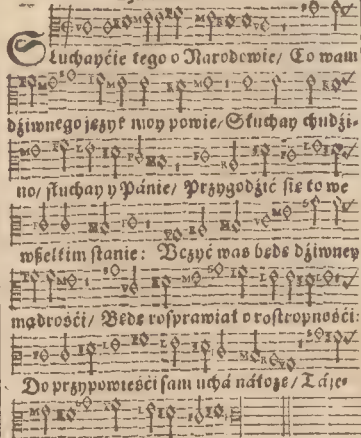 Słuchayćie tego o Narodowie/ Co wam
dźiwnego ięzyk moy powie/ Słuchay chudźi-
no/ słuchay y Pánie/ Przygodźić się to we
wßelkim stanie: Vczyć was będę dźiwney
mądrośći/ Będę rosprawiał o rostropnośći:
Do przypowieśći sam uchá náłożę/ Táie-